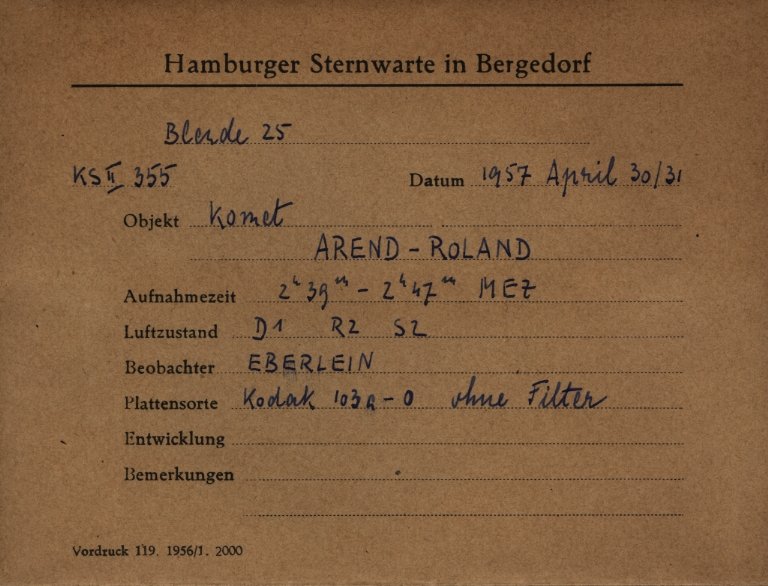 Hamburger Sternwarte in Bergedorf
Blende 25
KS II 355 Datum 1957 April 30/31
Objekt Komet
AREND - ROLAND
Aufnahmezeit 2ʰ 39ᵐ - 2ʰ 47ᵐ MEZ
Luftzustand D1 R2 S2
Beobachter EBERLEIN
Plattensorte Kodak 103a-O ohne Filter
Entwicklung
Bemerkungen
Vordruck 119. 1956/1. 2000